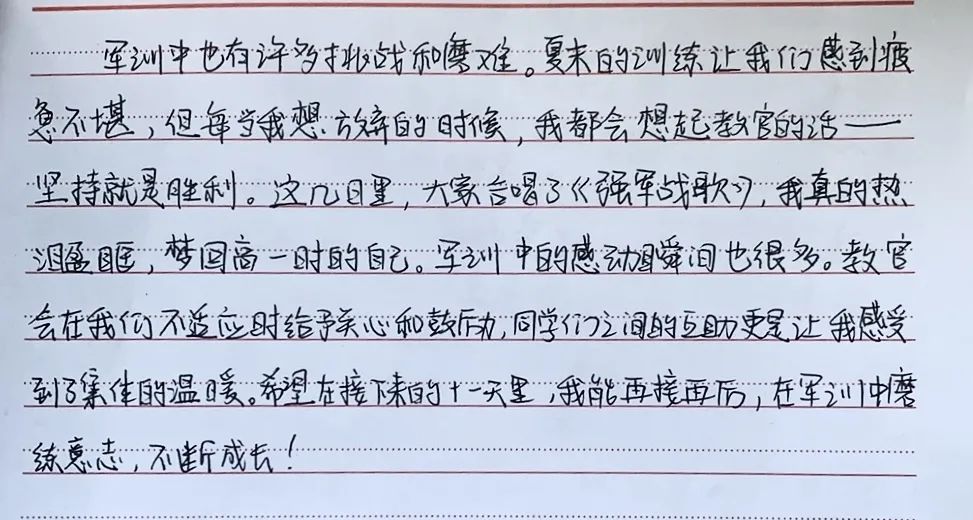 军训中也有许多挑战和磨难。夏末的训练让我们感到疲
惫不堪，但每当我想放弃的时候，我都会想起教官的话——
坚持就是胜利。这几日里，大家合唱了《强军战歌》，我真的热
泪盈眶，梦回高一时的自己。军训中的感动瞬间也很多。教官
会在我们不适应时给予关心和鼓励，同学们之间的互助更是让我感受
到了集体的温暖。希望在接下来的十一天里，我能再接再厉，在军训中磨
练意志，不断成长！